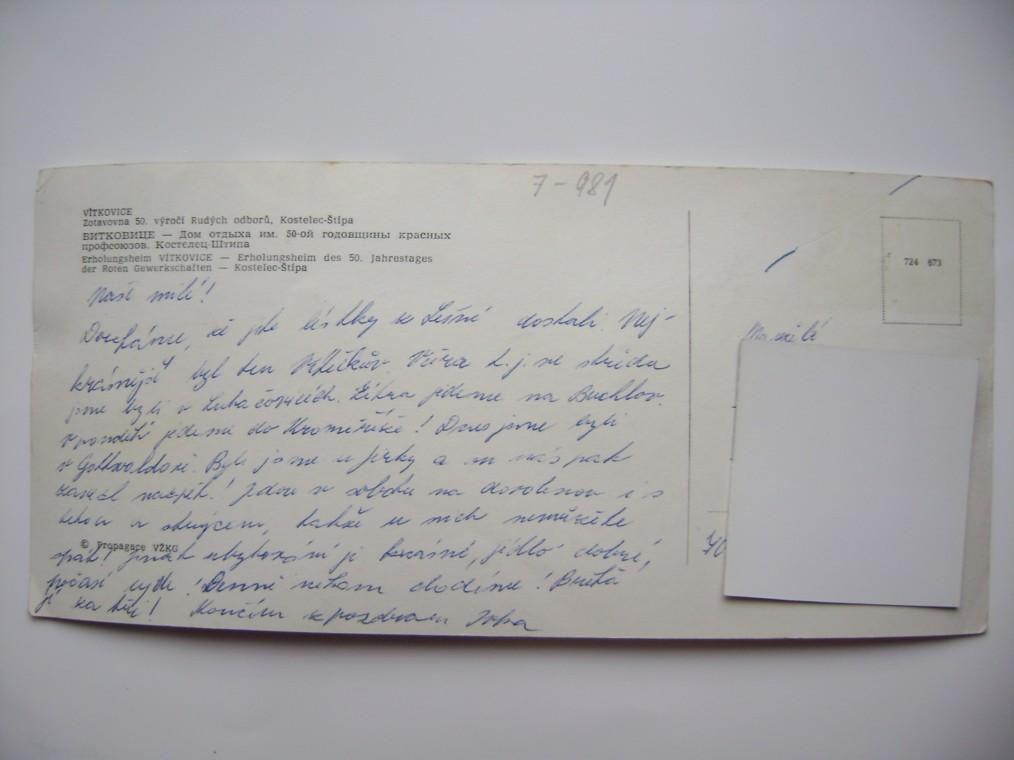 7-981
VÍTKOVICE
Zotavovna 50. výročí Rudých odborů, Kostelec-Štípa
ВИТКОВИЦЕ — Дом отдыха им. 50-ой годовщины красных
профсоюзов. Костелец-Штипа
Erholungsheim VÍTKOVICE — Erholungsheim des 50. Jahrestages
der Roten Gewerkschaften — Kostelec-Štípa
724 673
Naši milí!
Doufáme, že jste lístky z Lešné dostali. Nej-
krásnější byl ten
jsme byli v Luhačovicích. Zítra jedeme na Buchlov.
v pondělí jedeme do Kroměříže! Dnes jsme byli
v Gottwaldově. Byli jsme u Jirky a on nás pak
zavezl nazpět! Jedou v sobotu na dovolenou i s
tetou a strýcem, takže u nich nemůžete
spát! Jinak ubytování je krásné, jídlo dobré,
© Propagace VŽKG
počasí ujde! Denně někam chodíme!
Končím s pozdravem